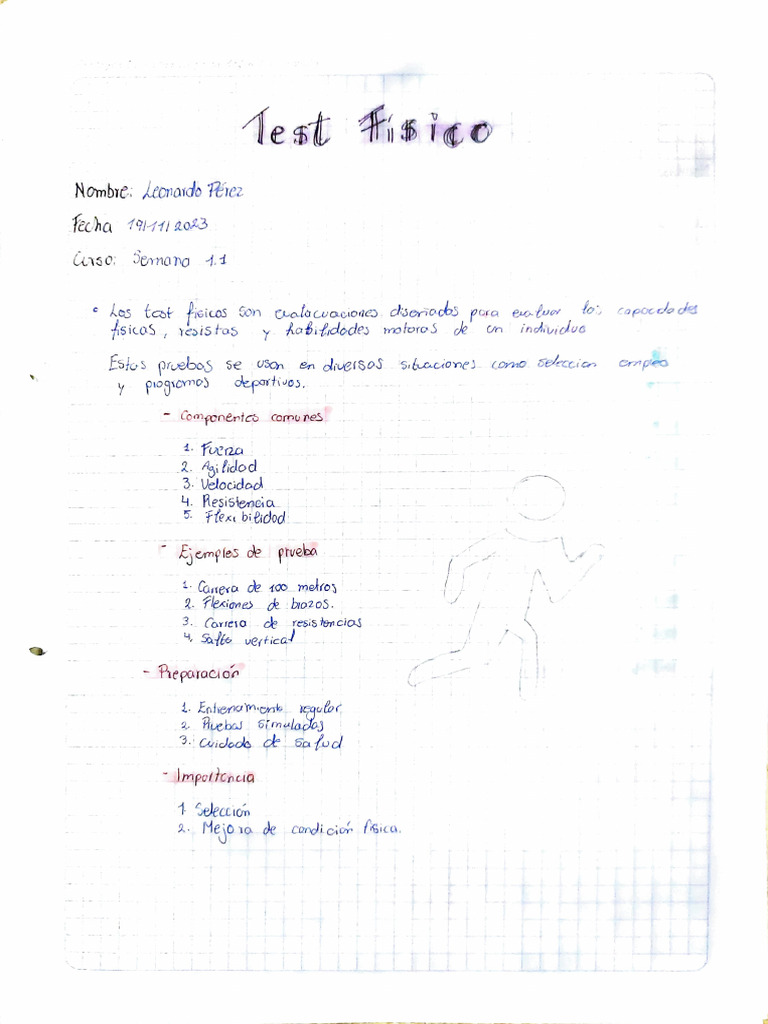 Test Físico
Nombre: Leonardo Pérez
Fecha 19/11/2023
Curso: Semana 1.1
• Los test físicos son evaluacuaciones diseñados para evaluar las capacidades
físicas, resistas y habilidades motoras de un individuo
Estas pruebas se usan en diversas situaciones como selección empleo
y programas deportivos.
- Componentes comunes
1. Fuerza
2. Agilidad
3. Velocidad
4. Resistencia
5. Flexibilidad
- Ejemples de prueba
1. Carrera de 100 metros
2. Flexiones de brazos.
3. Carrera de resistencias
4. Salto vertical
- Preparación
1. Entrenamiento regular
2. Pruebas simuladas
3. Cuidado de salud
- Importancia
1 Selección
2. Mejora de condición física.